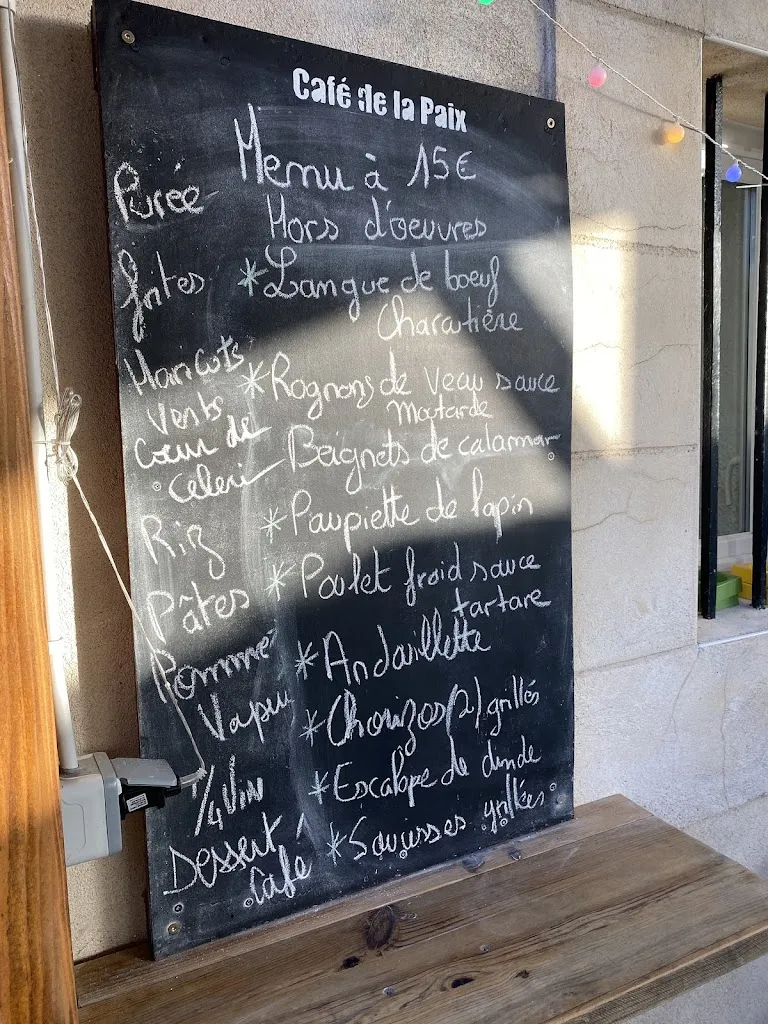 Café de la Paix
Menu à 15€
Hors d'oeuvres
*Langue de boeuf
Charcutière
*Rognons de veau sauce
Moutarde
Beignets de calamar
*Paupiette de lapin
*Poulet froid sauce
tartare
*Andouillette
*Chorizos (2) grillés
*Escalope de dinde
*Saucisses grillées
Purée
frites
Haricots
Verts
Cœur de
Celeri
Riz
Pâtes
Pomme
Vapeur
1/4 Vin
Dessert /
Café